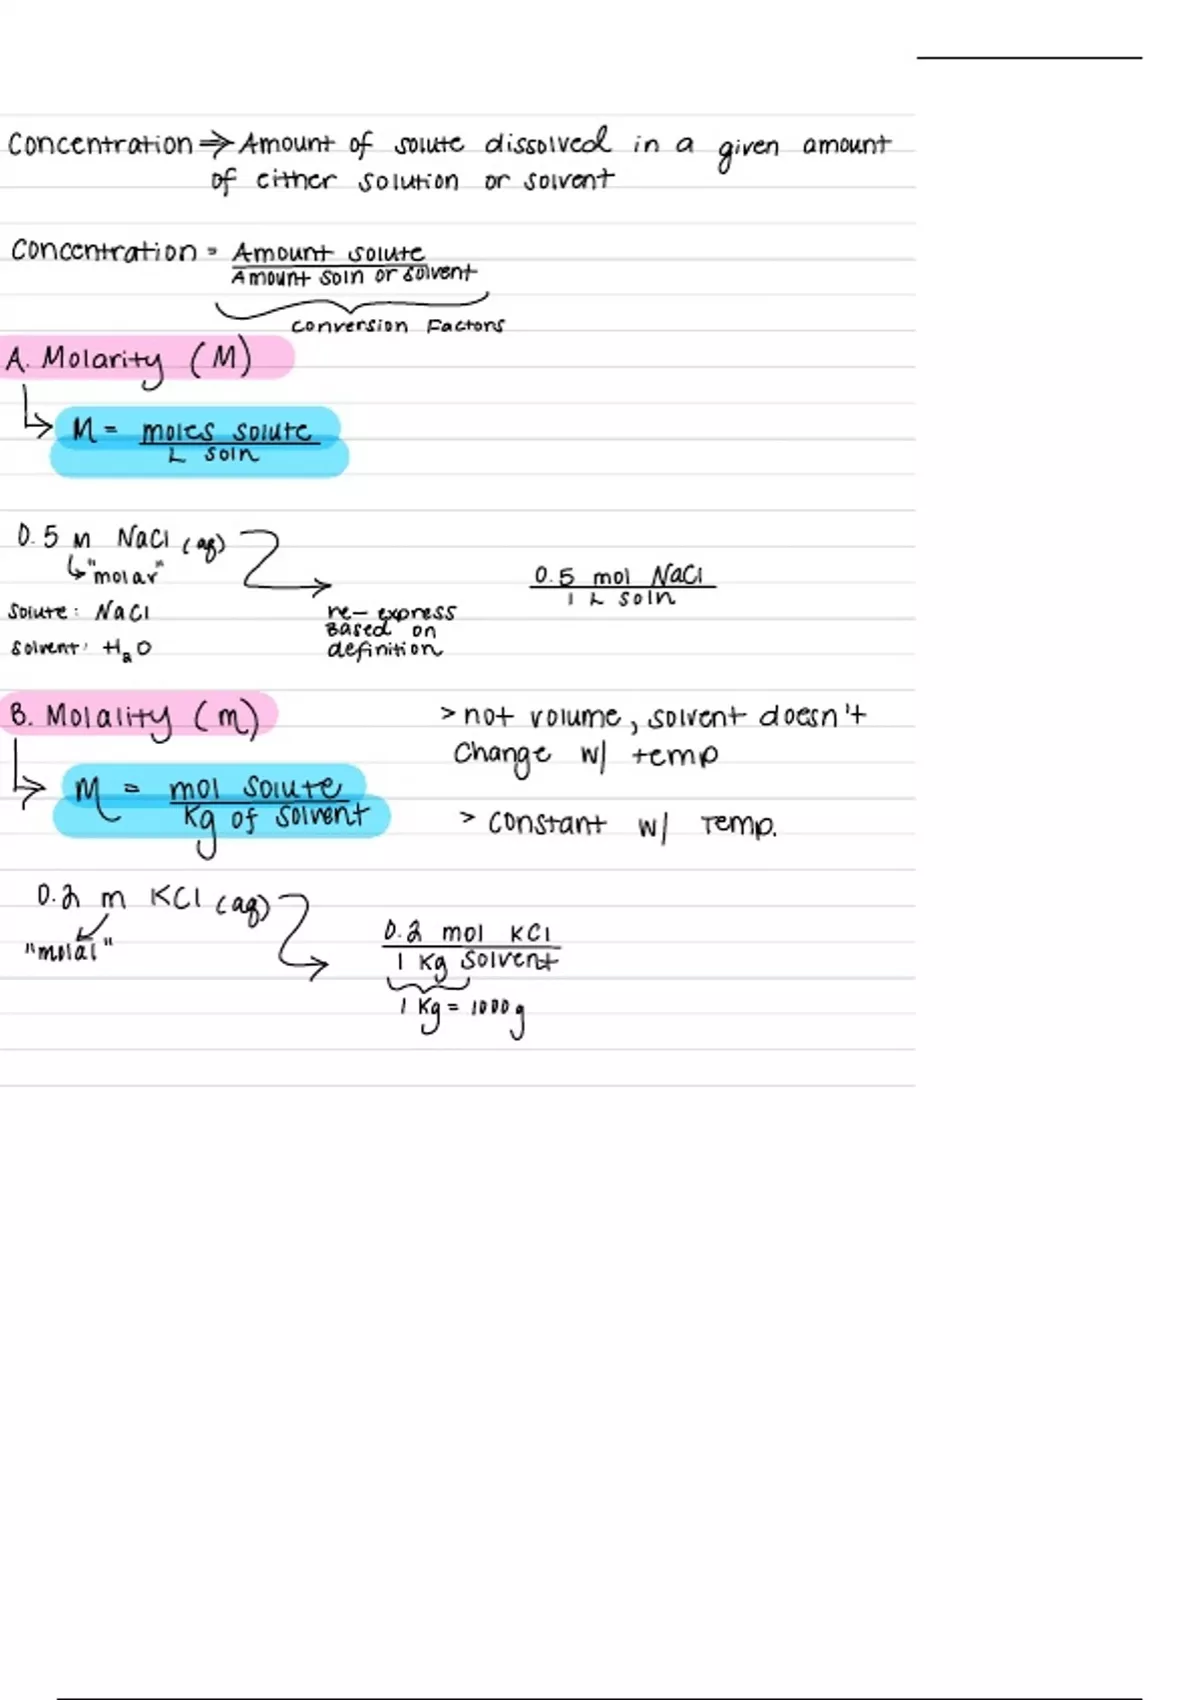 Concentration ⇒ Amount of solute dissolved in a given amount
of either solution or solvent
Concentration = Amount solute
Amount soln or solvent
conversion Factors
A. Molarity (M)
M = moles solute
L soln
0.5 M NaCl (aq)
"molar"
0.5 mol NaCl
1 L soln
solute: NaCl
solvent: H₂O
re-express
Based on
definition
B. Molality (m)
> not volume, solvent doesn't
change w/ temp
m = mol solute
Kg of solvent
> constant w/ Temp.
0.2 m KCl (aq)
"molal"
0.2 mol KCl
1 Kg solvent
1 Kg = 1000g